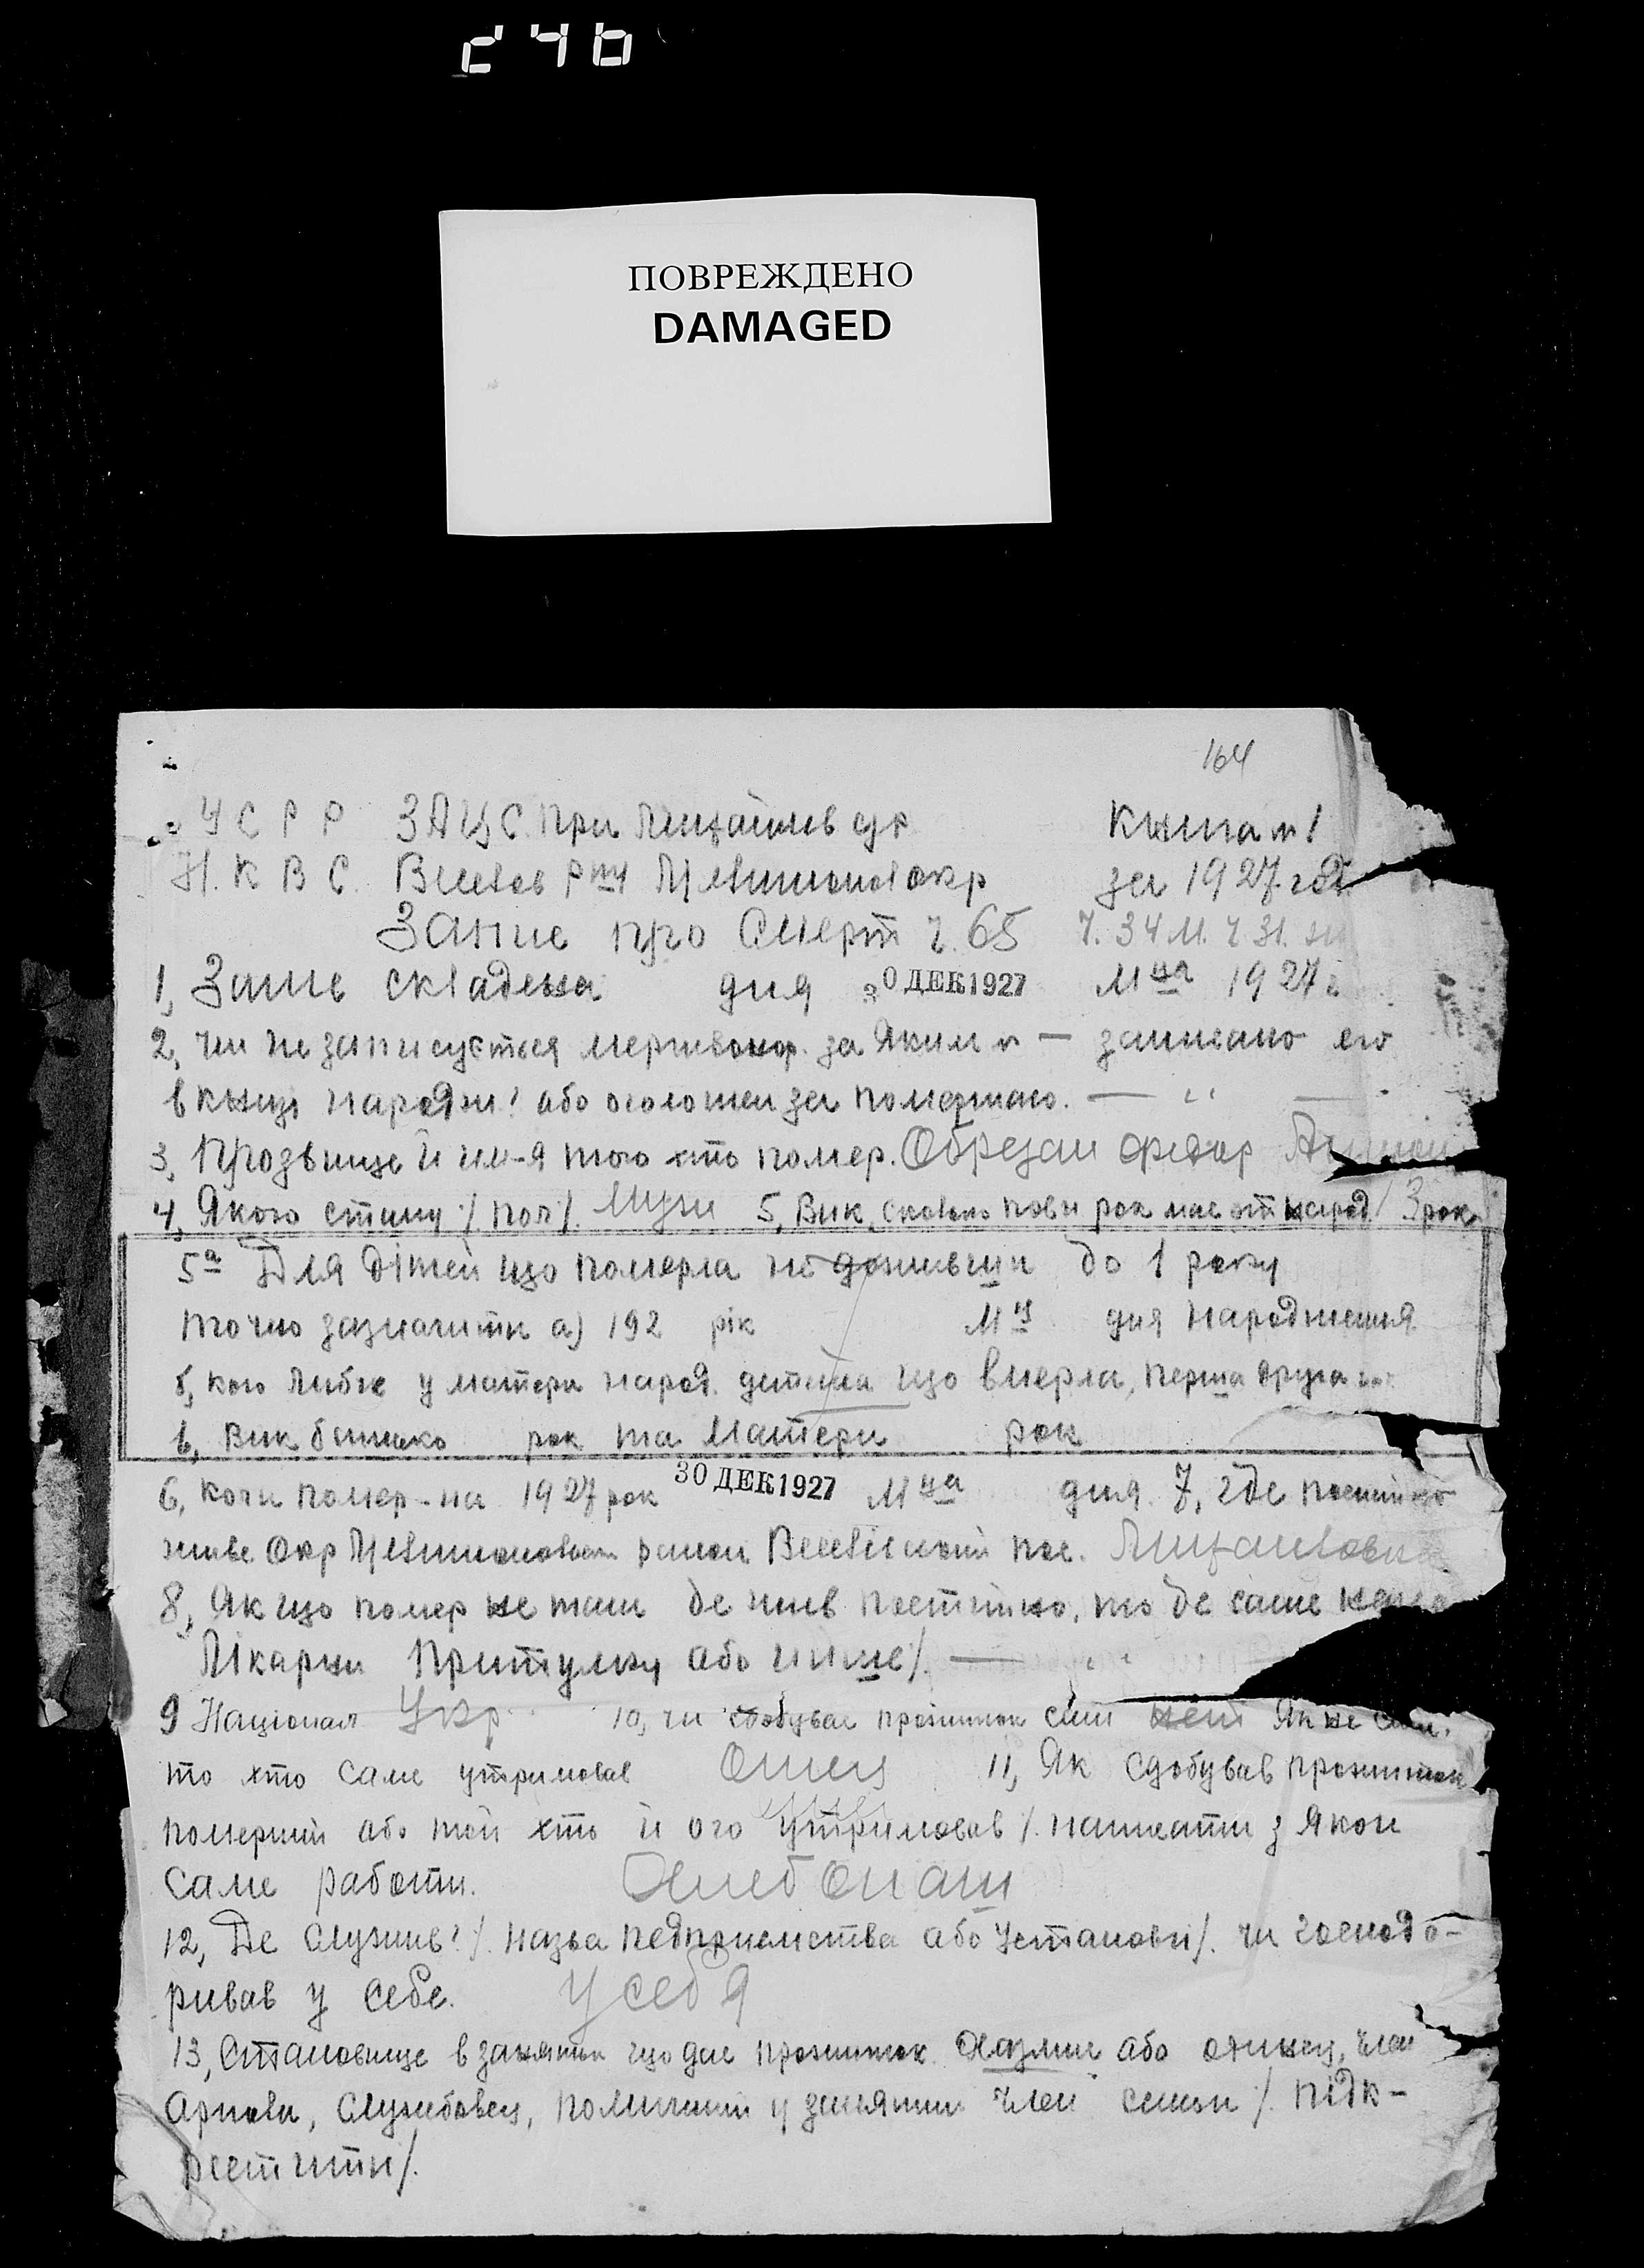 ПОВРЕЖДЕНО
DAMAGED
164
У С Р Р ЗАЦС при с/р Книга № 1
Н. К В С. за 1927 год
Запис про Смерт ч. 65 Ч. 34 М. Ч. 31.
1, Запис складена дня 30 ДЕК 1927 М ца 1927
2, чи не записується мертвонар. за Яким № — записано его
в книзі народж. або оголошен за помершаго. — " —
3, Прозвище й им-я того хто помер. Обрезан Федор
4, Якого стану /. пол /. Муж 5, Вик, сколько повн рок мае от народ / 3 рок
5а Для дітей що померла не доживши до 1 року
точно зазначити а) 192 рік М ц дня Народження
б, кого либке у матери народ. дитина що вмерла, перша друга
в, Вик батько рок та Матери рок
6, коли помер-на 1927 рок 30 ДЕК 1927 М ца дня. 7, где постійно
живе Окр район пос.
8, Якщо помер не там де жив постійно, то де саме
Лікарни Притулку або инше /. — " "
9 Национал Укр. 10, чи здобувае прожиток сам нет Як не сам,
то хто саме утримовав Отец 11, Як сдобував прожиток
померший або той хто й ого Утримовав /. написати з якои
саме работи. Хлебопаш
12, Де Служив? /. Назва педприемства або Установи /. чи господо-
ривав у себе. У себя
13, Становище в занятии що дае прожиток. Хазяин або одинец, член
Артели, Служебовец, помичний у занятии член семьи /. підк-
реститн /.